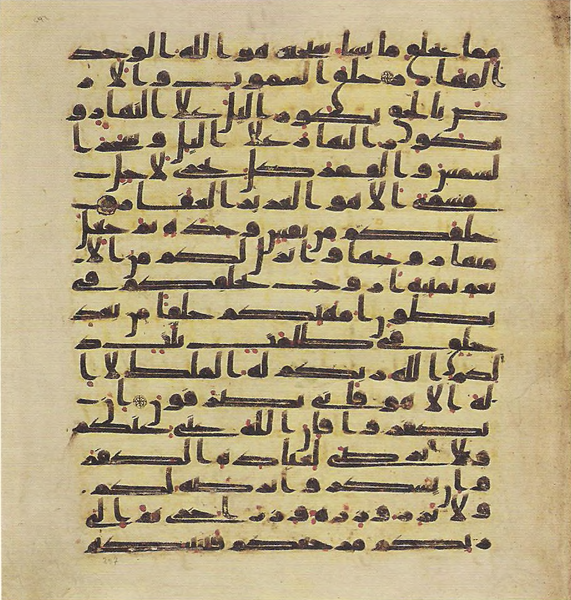 مما يخلق ما يشا سبحنه هو الله الوحد
القهار خلق السموت والا
رض بالحق يكور اليل على النهار و
يكور النهار على اليل وسخر ا
لشمس والقمر كل يجرى لاجل
مسمى الا هو العزيز الغفر
خلقكم من نفس وحدة ثم جعل
منها زوجها وانزل لكم من الا
نعم ثمنية ازوج يخلقكم فى
بطون امهتكم خلقا من بعد
خلق فى ظلمت ثلث ذ
لكم الله ربكم له الملك لا ا
له الا هو فانى تصرفون ان
تكفروا فان الله غنى عنكم
ولا يرضى لعباده الكفر
وان تشكروا يرضه لكم
ولا تزر وزرة وزر اخرى ثم الى
ربكم مرجعكم فينبئكم